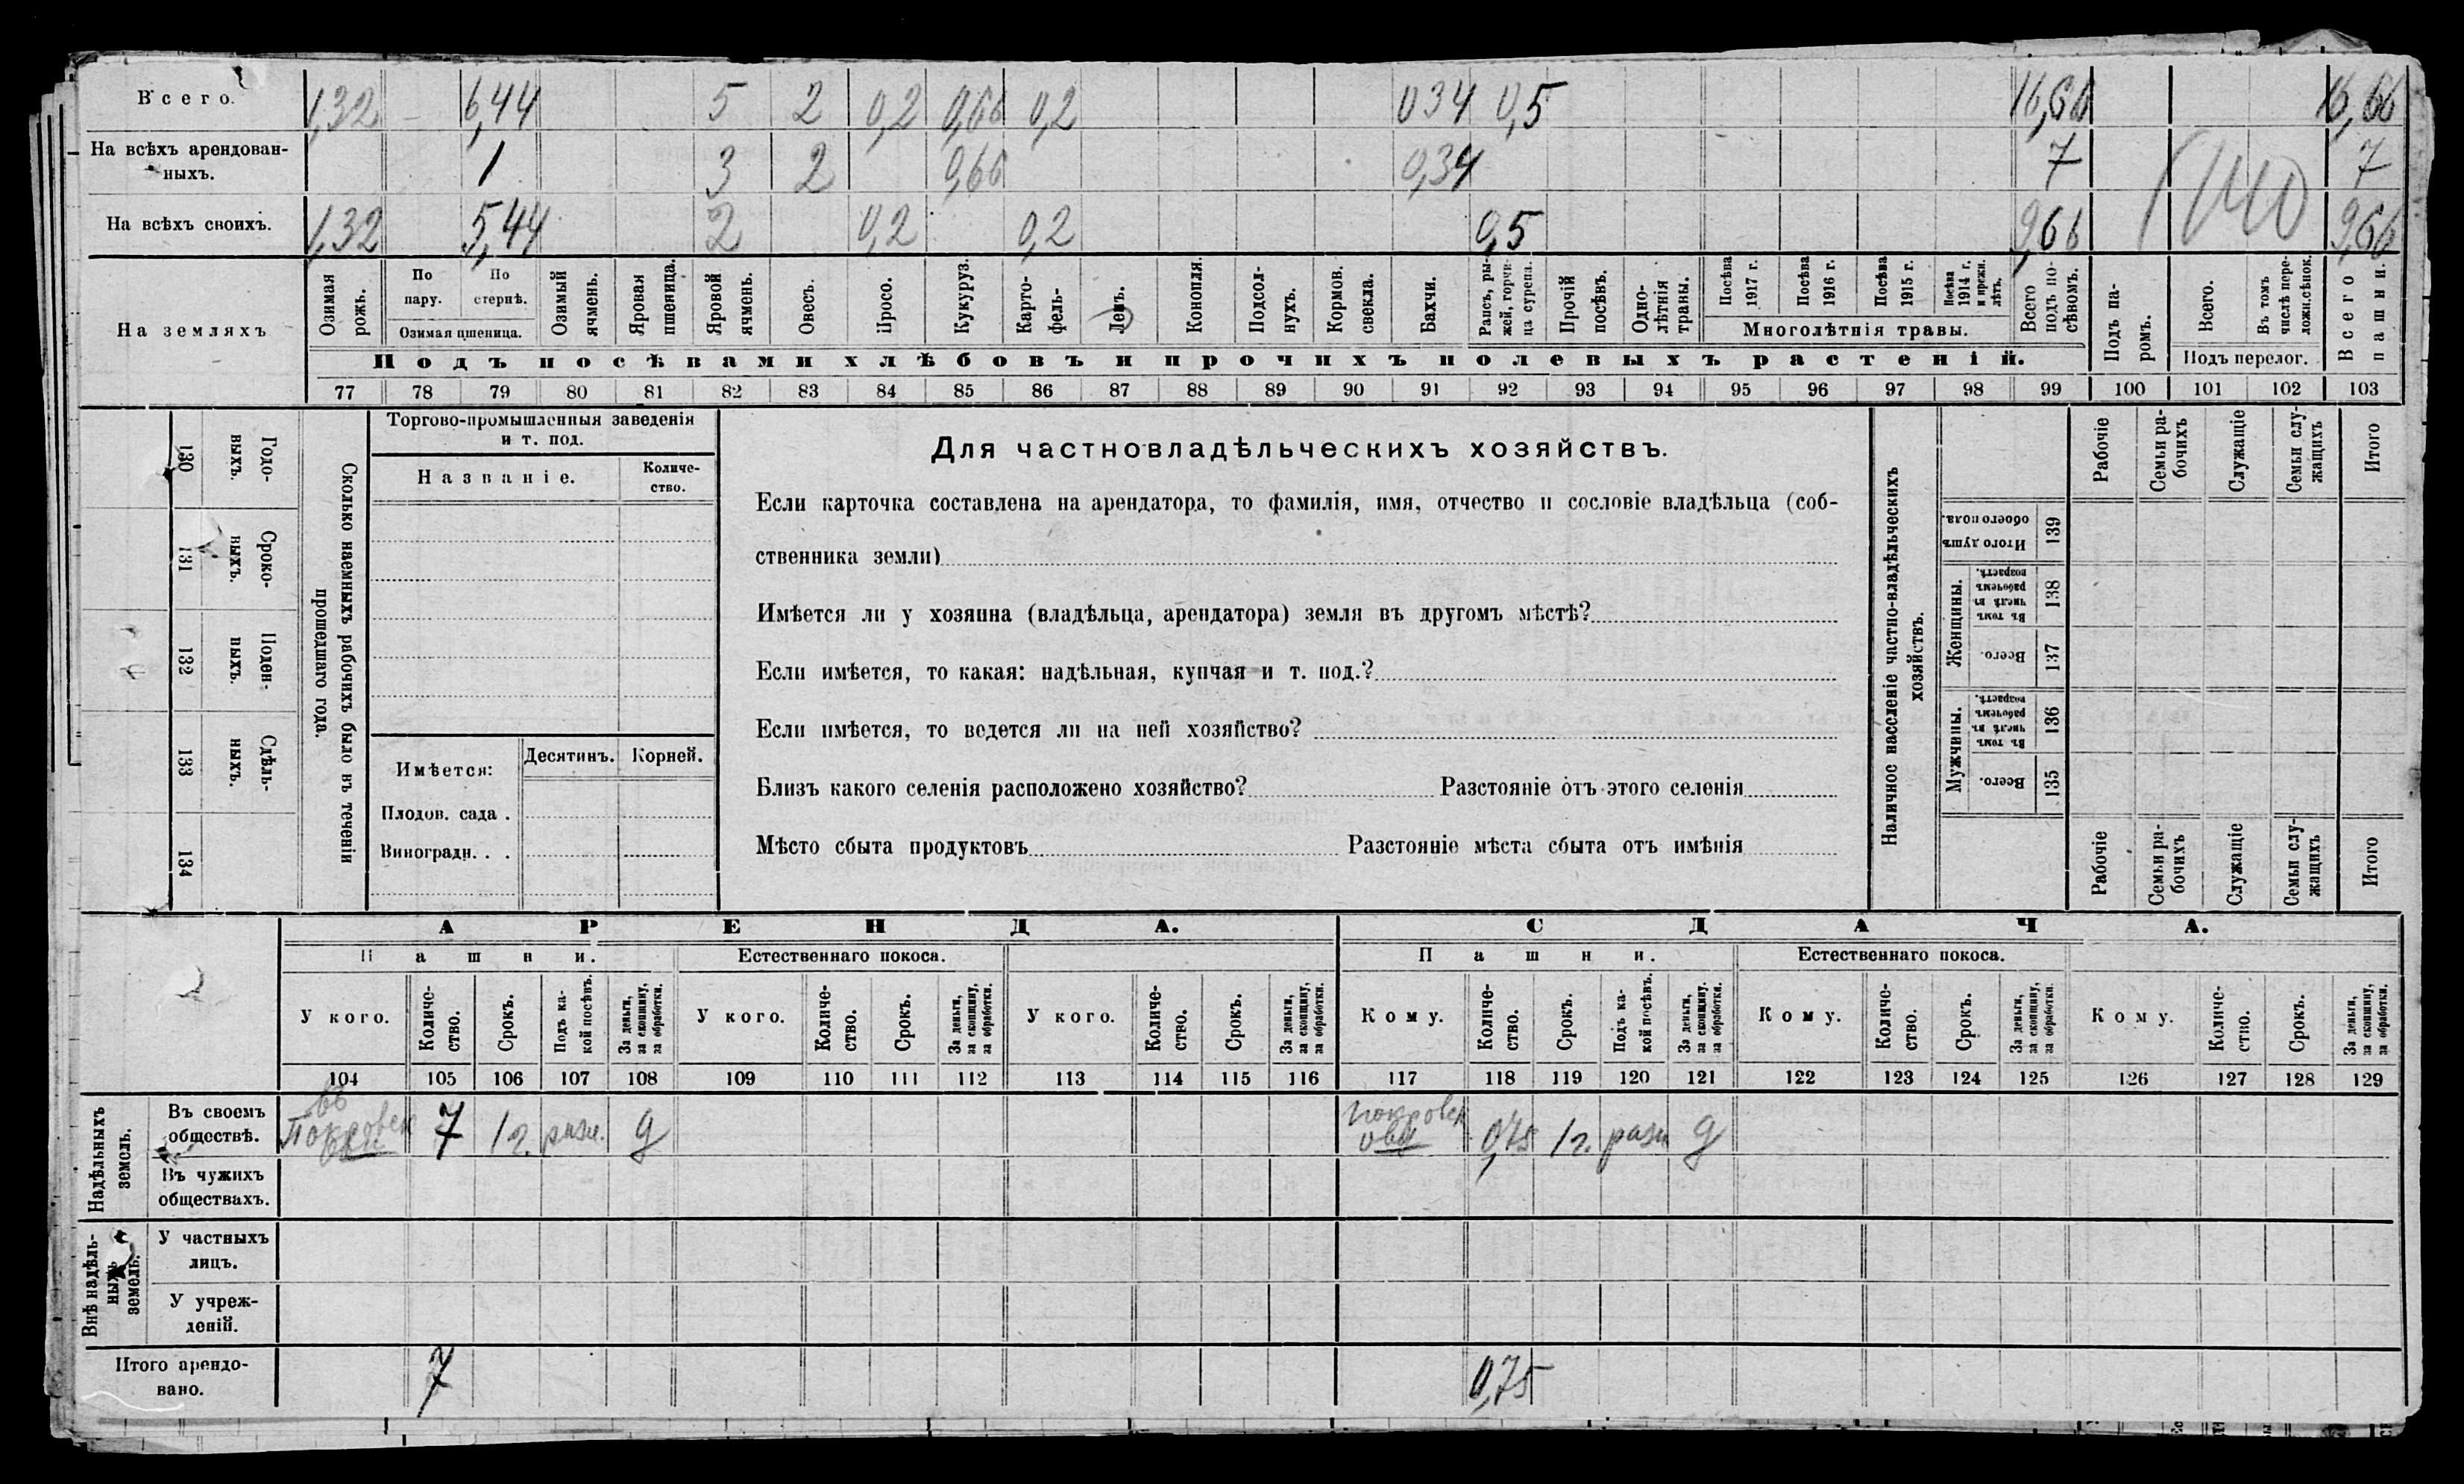 Всего. 1,32 6,44 5 2 0,2 0,66 0,2 0 34 0,5 16,66 16,66
На всѣхъ арендован-
ныхъ. 1 3 2 0,66 0,34 7 7
На всѣхъ своихъ. 1,32 5,44 2 0,2 0,2 0,5 9,66 9,66
На земляхъ
Озимая рожь.
По пару.
По стернѣ.
Озимая пшеница.
Озимый ячмень.
Яровая пшеница.
Яровой ячмень.
Овесъ.
Просо.
Кукуруз.
Карто-
фель-
Ленъ.
Конопля.
Подсол-
нухъ.
Кормов. свекла.
Бахчи.
Рапсъ, ры-
жей, горчи-
ца сурепа.
Прочій посѣвъ.
Одно-
лѣтнія травы.
Посѣва 1917 г.
Посѣва 1916 г.
Посѣва 1915 г.
Посѣва 1914 г. и прежн. лѣтъ.
Многолѣтнія травы.
Всего подъ по-
сѣвомъ.
Подъ па-
ромъ.
Всего.
Въ томъ числѣ пере-
ложн.сѣнок.
Подъ перелог.
Всего пашни.
Подъ посѣвами хлѣбовъ и прочихъ полевыхъ растеній.
77 78 79 80 81 82 83 84 85 86 87 88 89 90 91 92 93 94 95 96 97 98 99 100 101 102 103
Годо-
выхъ.
130
Сроко-
ныхъ.
131
Поден-
ныхъ.
132
Сдѣль-
ныхъ.
133
134
Сколько наемныхъ рабочихъ было въ теченіи
прошедшаго года.
Торгово-промышленныя заведенія
и т. под.
Названіе.
Количе-
ство.
Имѣется:
Десятинъ. Корней.
Плодов. сада .
Виноградн. . .
Для частновладѣльческихъ хозяйствъ.
Если карточка составлена на арендатора, то фамилія, имя, отчество и сословіе владѣльца (соб-
ственника земли)
Имѣется ли у хозяина (владѣльца, арендатора) земля въ другомъ мѣстѣ?
Если имѣется, то какая: надѣльная, купчая и т. под.?
Если имѣется, то ведется ли на ней хозяйство?
Близъ какого селенія расположено хозяйство? Разстояніе отъ этого селенія
Мѣсто сбыта продуктовъ Разстояніе мѣста сбыта отъ имѣнія
Наличное населеніе частно-владѣльческихъ
хозяйствъ.
Рабочіе
Семьи ра-
бочихъ
Служащіе
Семьи слу-
жащихъ
Итого
Итого душъ
обоего пола.
139
Женщины.
Въ томъ числѣ въ рабочемъ возрастѣ.
138
Всего.
137
Мужчины.
Въ томъ числѣ въ рабочемъ возрастѣ.
136
Всего.
135
Рабочіе
Семьи ра-
бочихъ
Служащіе
Семьи слу-
жащихъ
Итого
АРЕНДА. СДАЧА.
Пашни. Естественнаго покоса. Пашни. Естественнаго покоса.
У кого.
Количе-
ство.
Срокъ.
Подъ ка-
кой посѣвъ.
За деньги,
за скопщину,
за обработки.
У кого.
Количе-
ство.
Срокъ.
За деньги,
за скопщину,
за обработки.
У кого.
Количе-
ство.
Срокъ.
За деньги,
за скопщину,
за обработки.
Кому.
Количе-
ство.
Срокъ.
Подъ ка-
кой посѣвъ.
За деньги,
за скопщину.
за обработки.
Кому.
Количе-
ство.
Срокъ.
За деньги,
за скопщину,
за обработки.
Кому.
Количе-
ство.
Срокъ.
За деньги,
за скопщину,
за обработки.
104 105 106 107 108 109 110 111 112 113 114 115 116 117 118 119 120 121 122 123 124 125 126 127 128 129
Надѣльныхъ
земель.
Въ своемъ
обществѣ.
въ
Покровск
7 1 г. разн. д
Покровск
0,75 1 г. разн д
Въ чужихъ
обществахъ.
Внѣ надѣль-
ныхъ
земель.
У частныхъ
лицъ.
У учреж-
деній.
Итого арендо-
вано. 7 0,75